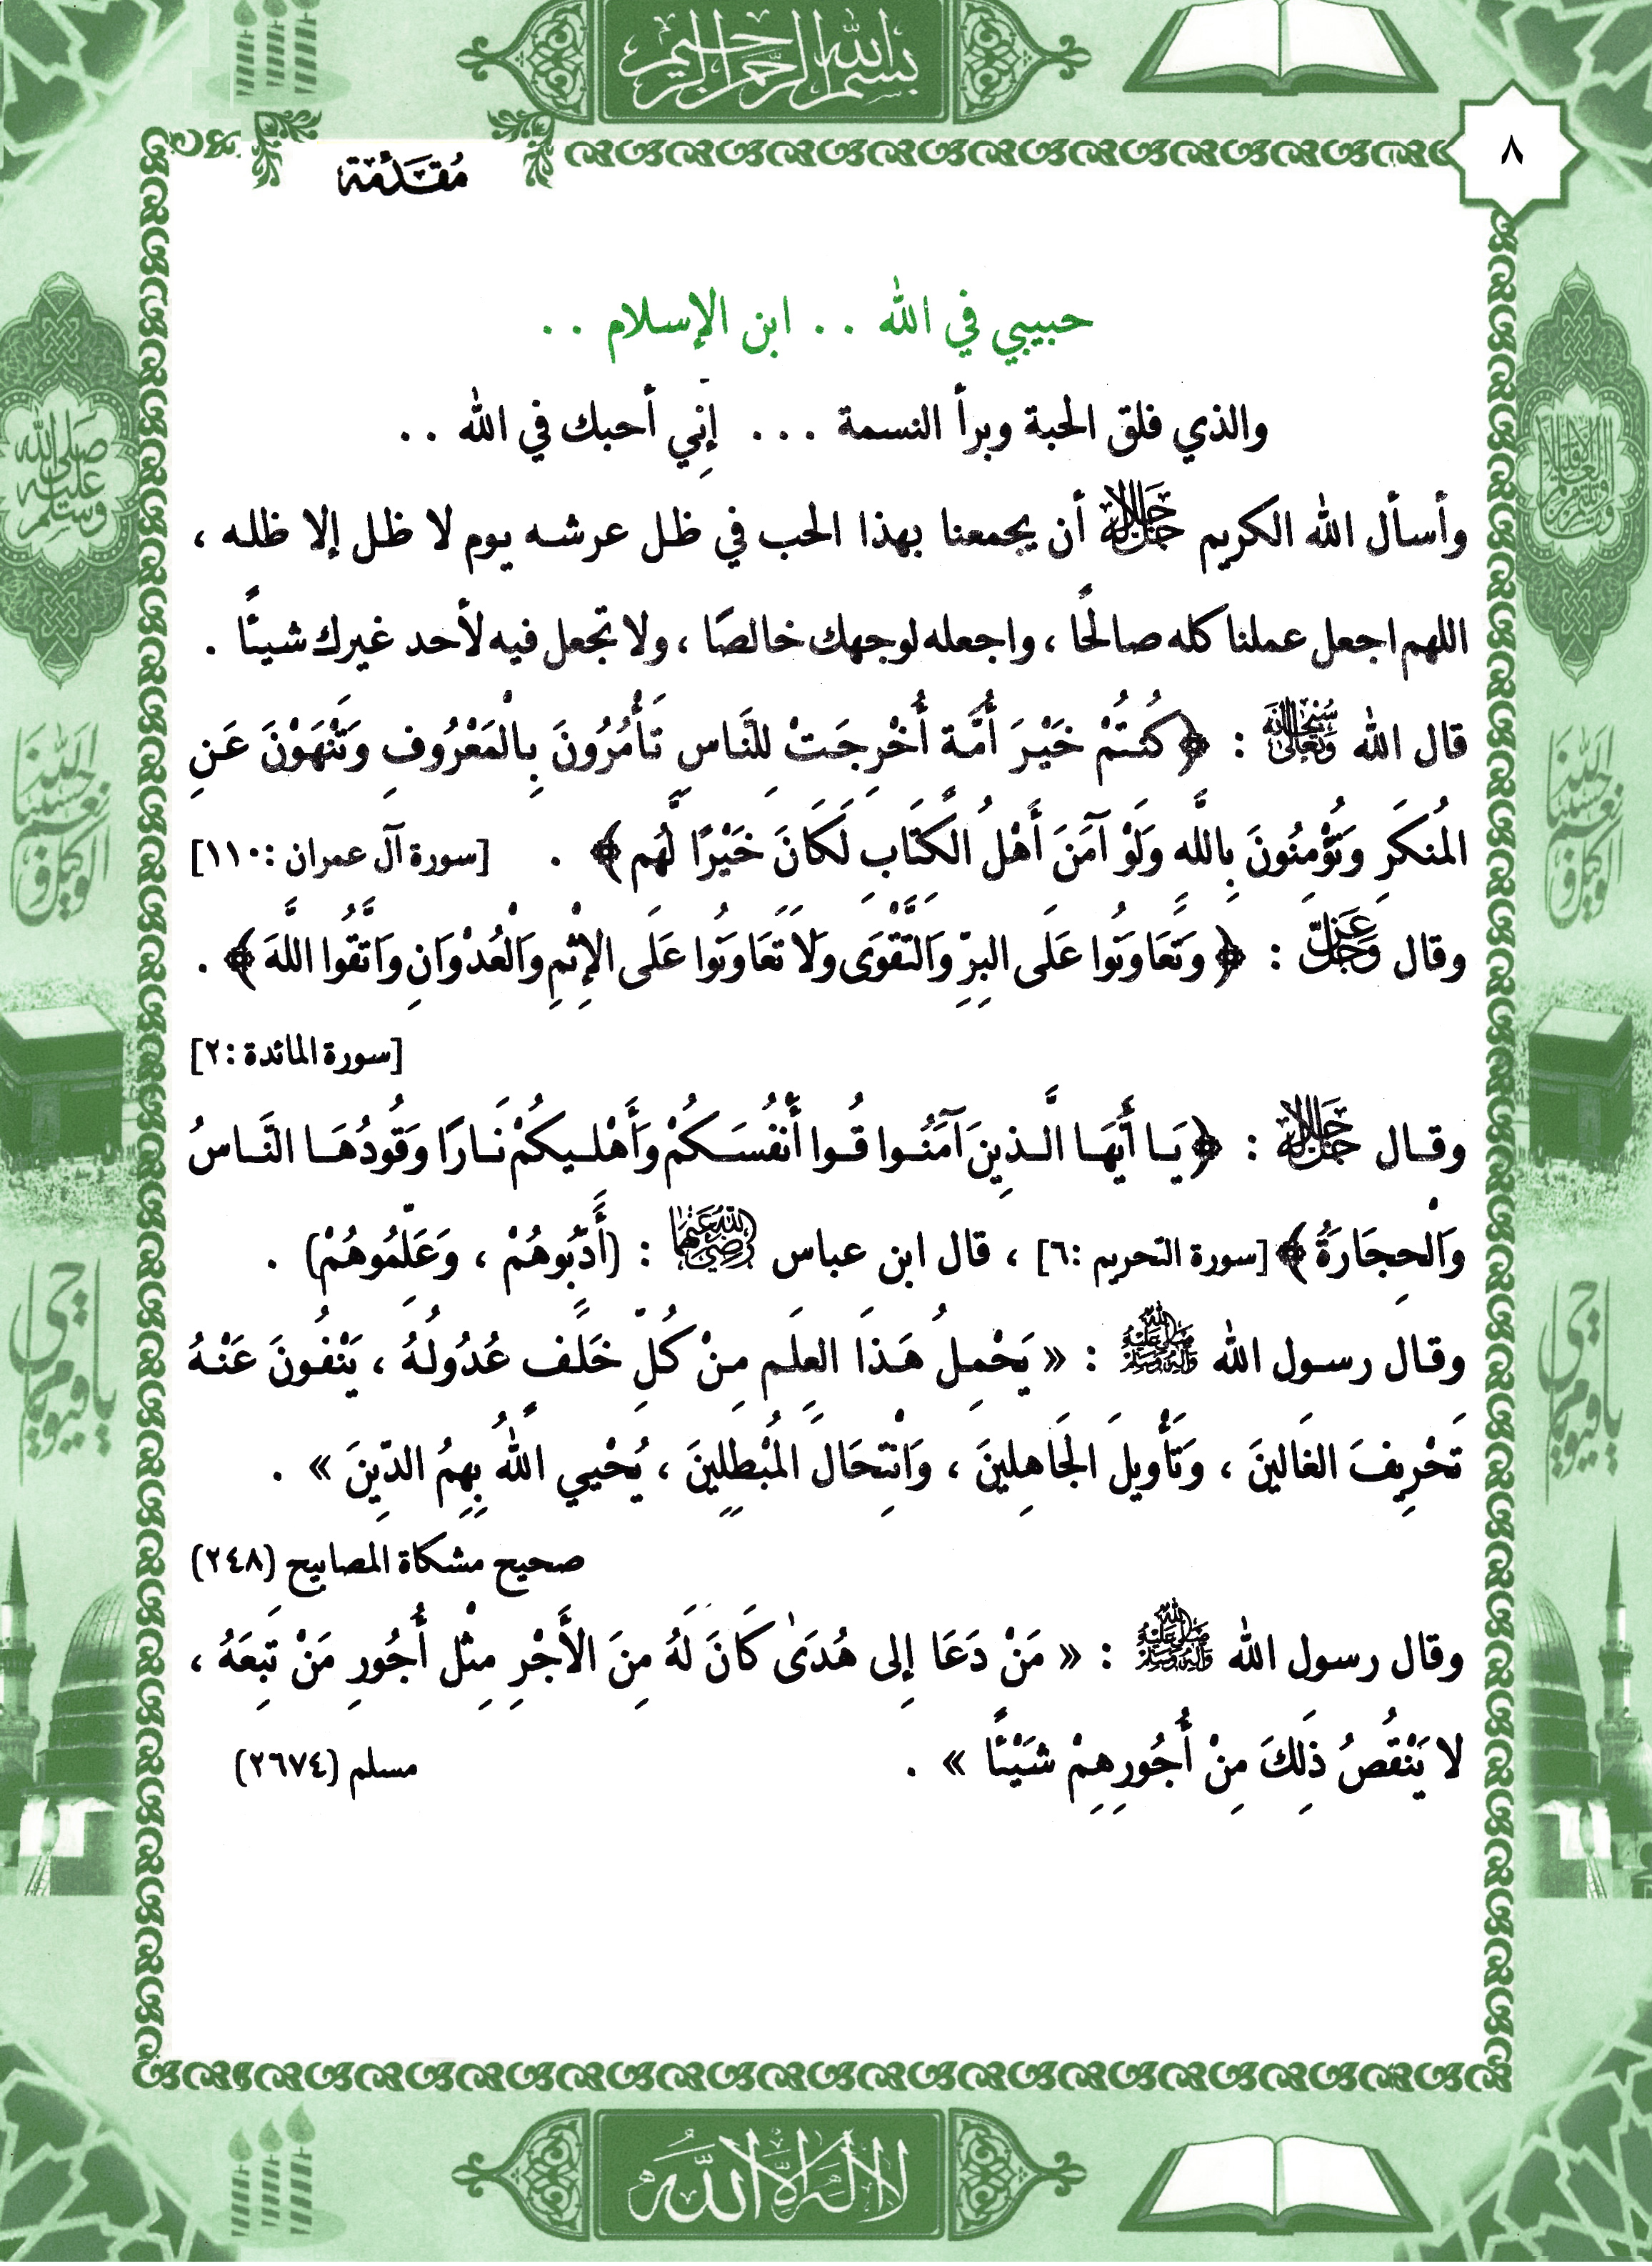 بسم الله الرحمن الرحيم
٨
مُقَدِّمَة
حبيبي في الله . . ابن الإسلام . .
والذي فلق الحبة وبرأ النسمة . . . إِنِّي أحبك في الله . .
وأسأل الله الكريم جل جلاله أن يجمعنا بهذا الحب في ظل عرشه يوم لا ظل إلا ظله ،
اللهم اجعل عملنا كله صالحًا ، واجعله لوجهك خالصًا ، ولا تجعل فيه لأحد غيرك شيئًا .
قال الله سبحانه وتعالى : ﴿ كُنتُمْ خَيْرَ أُمَّة أُخْرِجَتْ لِلنَّاسِ تَأْمُرُونَ بِالْمَعْرُوفِ وَتَنْهَوْنَ عَنِ
المُنكَرِ وَتُؤْمِنُونَ بِاللَّهِ وَلَوْ آمَنَ أَهْلُ الكِتَابِ لَكَانَ خَيْرًا لَّهُم ﴾ . [سورة آل عمران :١١٠]
وقال عز وجل : ﴿ وَتَعَاوَنُوا عَلَى البِرِّ وَالتَّقْوَى وَلا تَعَاوَنُوا عَلَى الإِثْمِ وَالْعُدْوَانِ وَاتَّقُوا اللَّهَ ﴾ .
[سورة المائدة :٢]
وقال جل جلاله : ﴿ يَا أَيُّهَا الَّذِينَ آمَنُوا قُوا أَنفُسَكُمْ وَأَهْلِيكُمْ نَارًا وَقُودُهَا النَّاسُ
وَالْحِجَارَةُ ﴾ [سورة التحريم :٦] ، قال ابن عباس رضي الله عنهما : (أَدِّبُوهُمْ ، وَعَلِّمُوهُمْ) .
وقال رسول الله صلى الله عليه وآله وسلم : « يَحْمِلُ هَذَا العِلَم مِنْ كُلِّ خَلَف عُدُولُهُ ، يَنْفُونَ عَنْهُ
تَحْرِيفَ الغَالينَ ، وَتَأْوِيلَ الجَاهِلِينَ ، وَانْتِحَالَ المُبْطِلِينَ ، يُحْيي اللهُ بِهِمُ الدِّينَ » .
صحيح مشكاة المصابيح (٢٤٨)
وقال رسول الله صلى الله عليه وآله وسلم : « مَنْ دَعَا إِلى هُدَىٰ كَانَ لَهُ مِنَ الأَجْرِ مِثْل أُجُورِ مَنْ تَبِعَهُ ،
لا يَنْقُصُ ذَلِكَ مِنْ أُجُورِهِمْ شَيْئًا » . مسلم (٢٦٧٤)
صلى الله عليه وسلم
حسبنا الله ونعم الوكيل
حسبنا الله ونعم الوكيل
يا حي يا قيوم
يا حي يا قيوم
لا اله الا الله